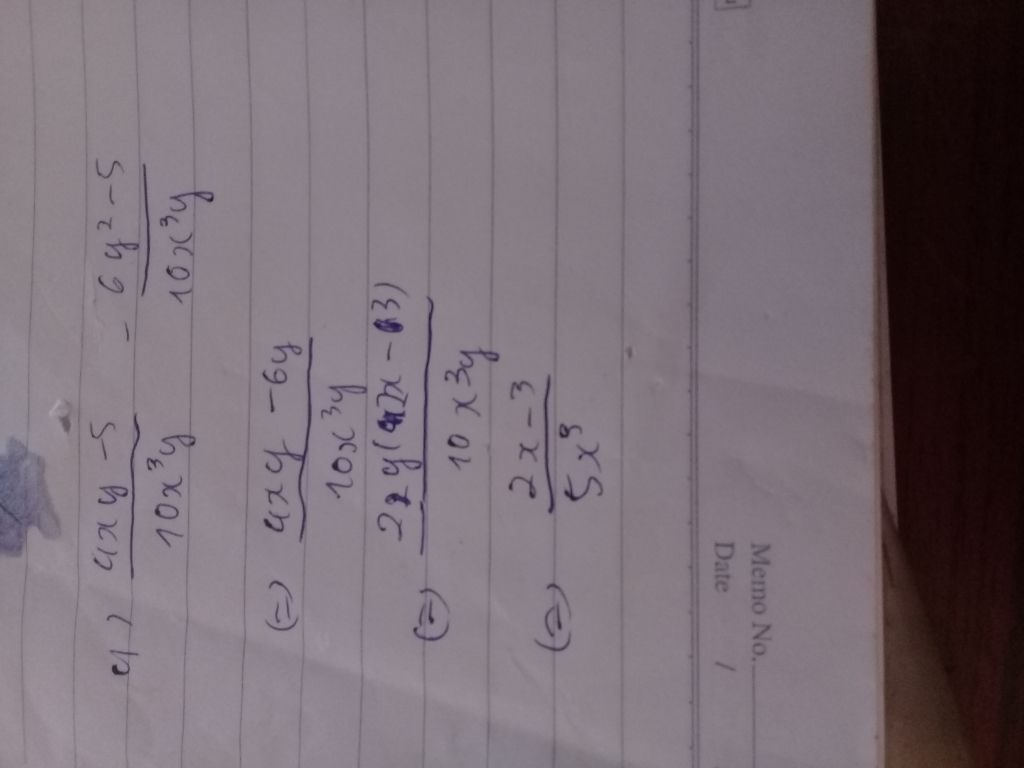 a) \frac{4xy-5}{10x^3y} - \frac{6y^2-5}{10x^3y}
(=) \frac{4xy-6y}{10x^3y}
(=) \frac{2y(2x-3)}{10x^3y}
(=) \frac{2x-3}{5x^3}
Memo No.
Date /